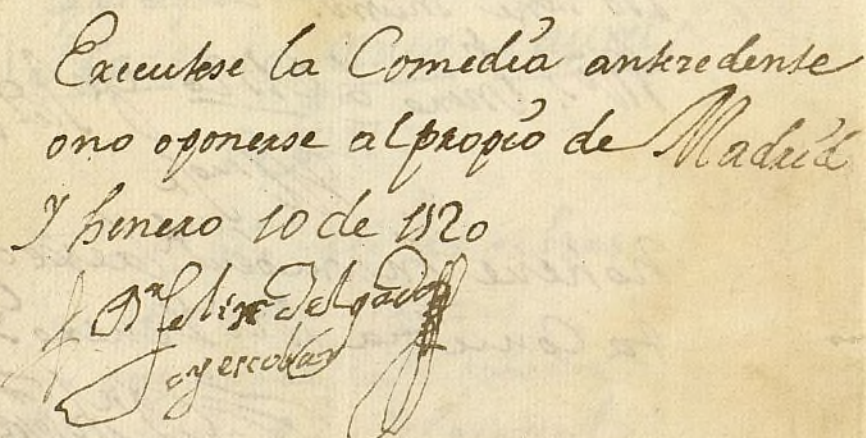 Executese la Comedia antezedente
ono oponerse al propio de Madrid
y henero 10 de 1720
Dn Felix Delgado
y escobar